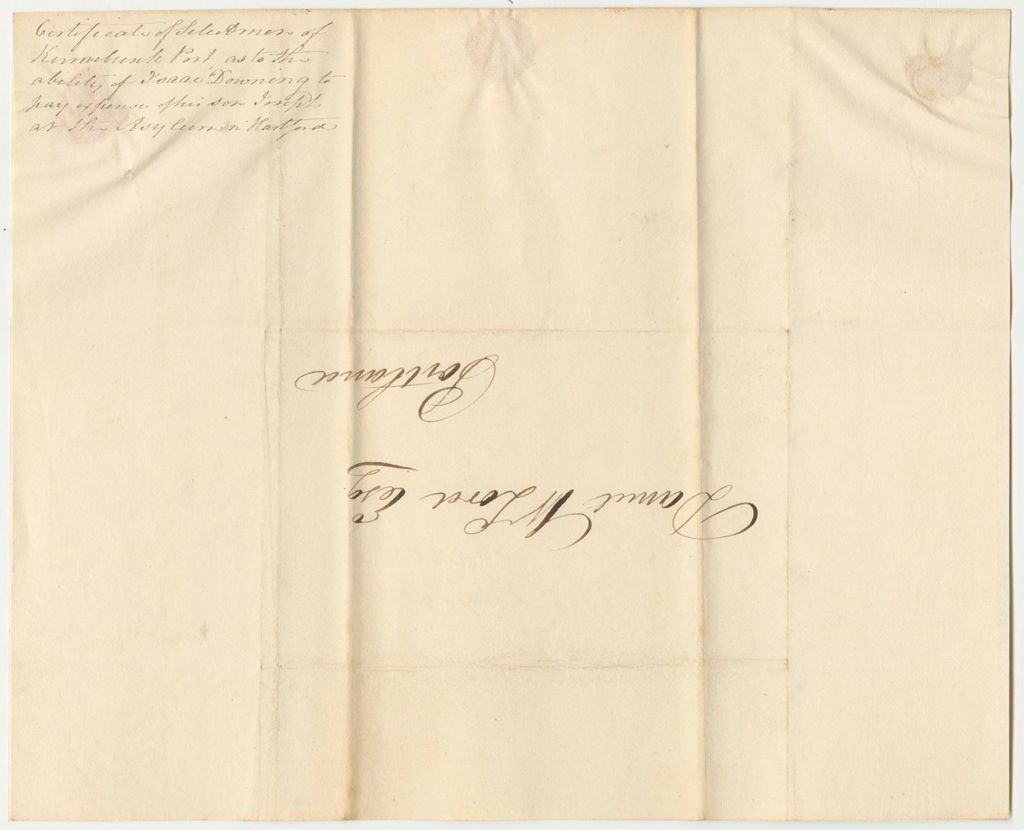 Certificate of Selectmen of
Kennebunk Port as to the
ability of Isaac Downing to
pay expense of his son Joseph
at the Asylum in Hartford
Daniel W Lord Esq
Portland